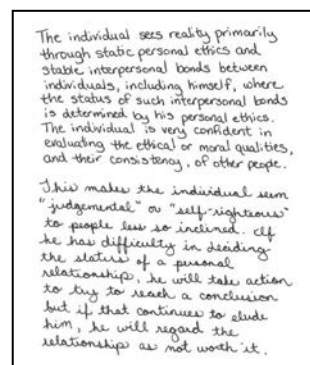 The individual sees reality primarily
through static personal ethics and
stable interpersonal bonds between
individuals, including himself, where
the status of such interpersonal bonds
is determined by his personal ethics.
The individual is very confident in
evaluating the ethical or moral qualities,
and their consistency, of other people.
This makes the individual seem
"judgemental" or "self-righteous"
to people less so inclined. If
he has difficulty in deciding
the status of a personal
relationship, he will take action
to try to reach a conclusion
but if that continues to elude
him, he will regard the
relationship as not worth it.